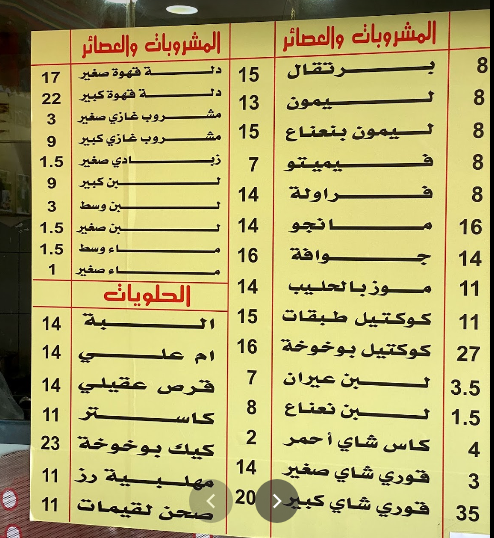 المشروبات والعصائر
8 برتقال 15
8 ليمون 13
8 ليمون بنعناع 15
8 فيميتو 7
8 فراولة 14
16 مانجو 14
14 جوافة 16
11 موز بالحليب 14
11 كوكتيل طبقات 15
27 كوكتيل بوخوخة 16
3.5 لبن عيران 7
1.5 لبن نعناع 8
4 كاس شاي أحمر 2
3 قوري شاي صغير 14
35 قوري شاي كبير 20
المشروبات والعصائر
دلة قهوة صغير 17
دلة قهوة كبير 22
مشروب غازي صغير 3
مشروب غازي كبير 9
زبادي صغير 1.5
لبن كبير 9
لبن وسط 3
لبن صغير 1.5
ماء وسط 1.5
ماء صغير 1
الحلويات
البة 14
ام علي 14
قرص عقيلي 14
كاستر 11
كيك بوخوخة 23
مهلبية رز 11
صحن لقيمات 11